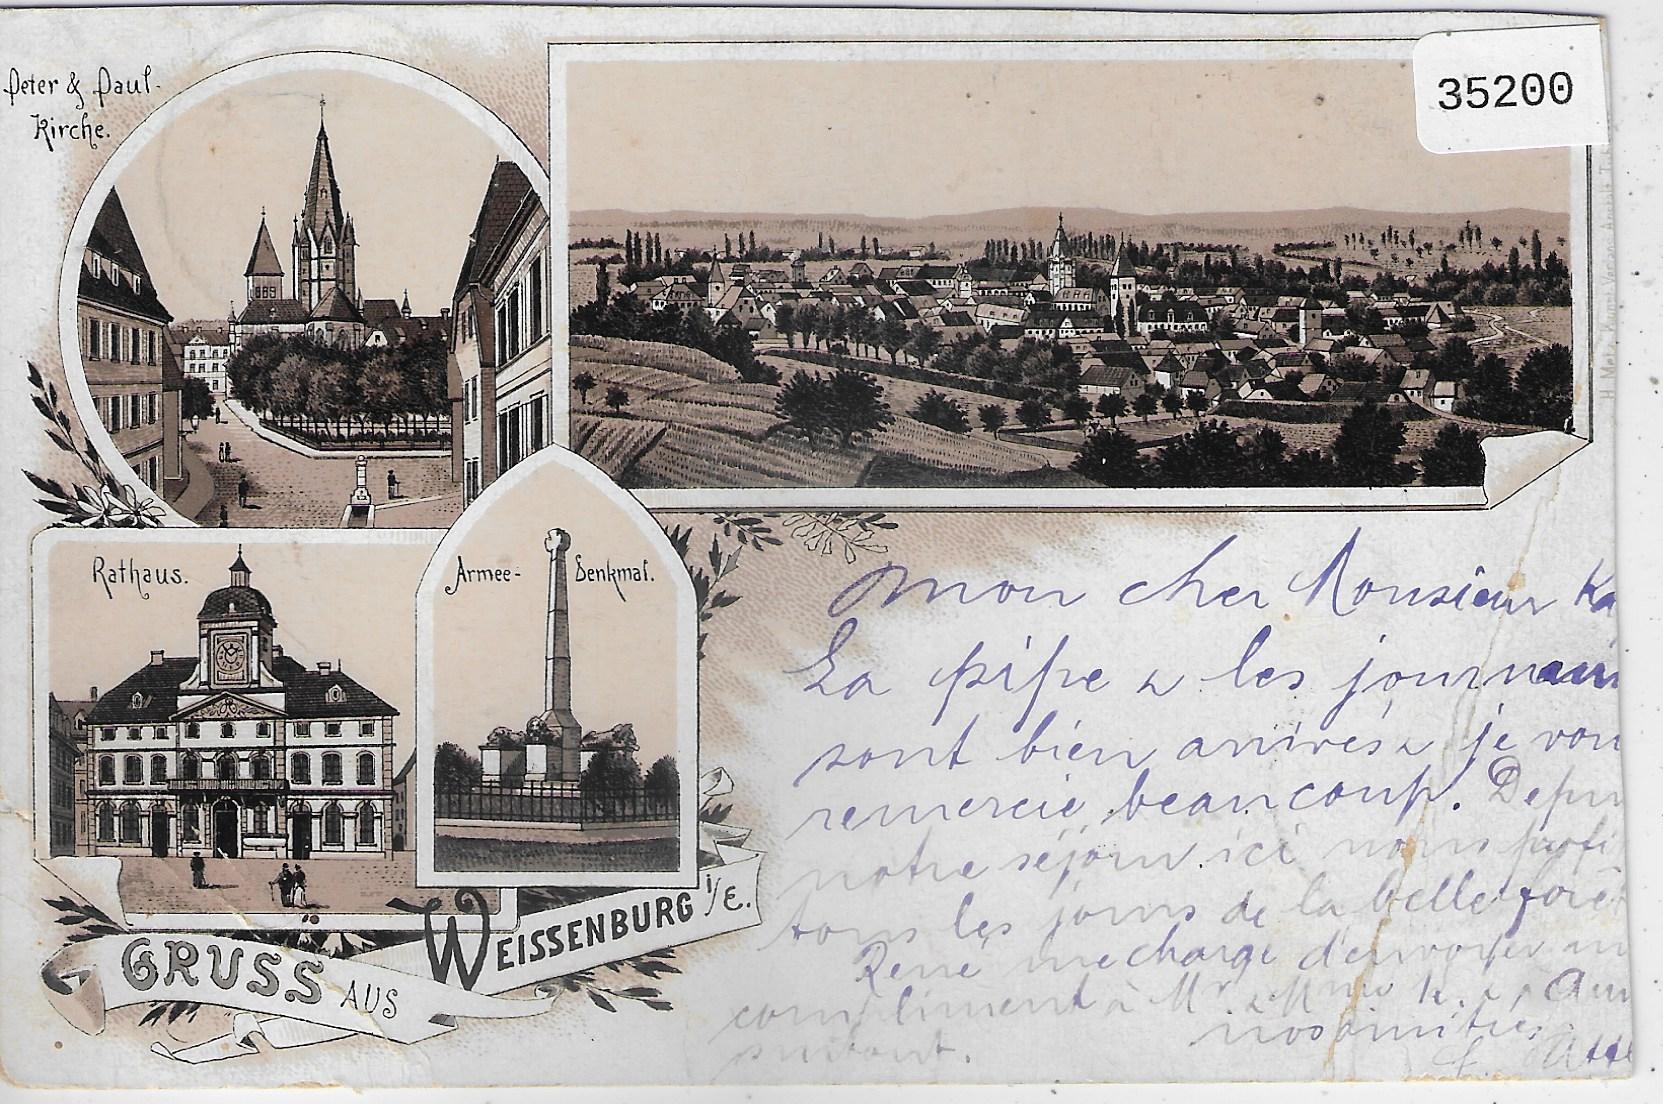 Peter & Paul-
Kirche.
35200
Rathaus.
Armee- Denkmal.
GRUSS AUS
WEISSENBURG i/E.
Mon cher Monsieur
La pipe & les journaux
sont bien arrivés & je vous
remercie beaucoup. Depuis
notre séjour ici nous
tous les jours de la belle forêt
René me charge d'envoyer
compliment à Mr. & Mme K.
surtout. nos amitiés